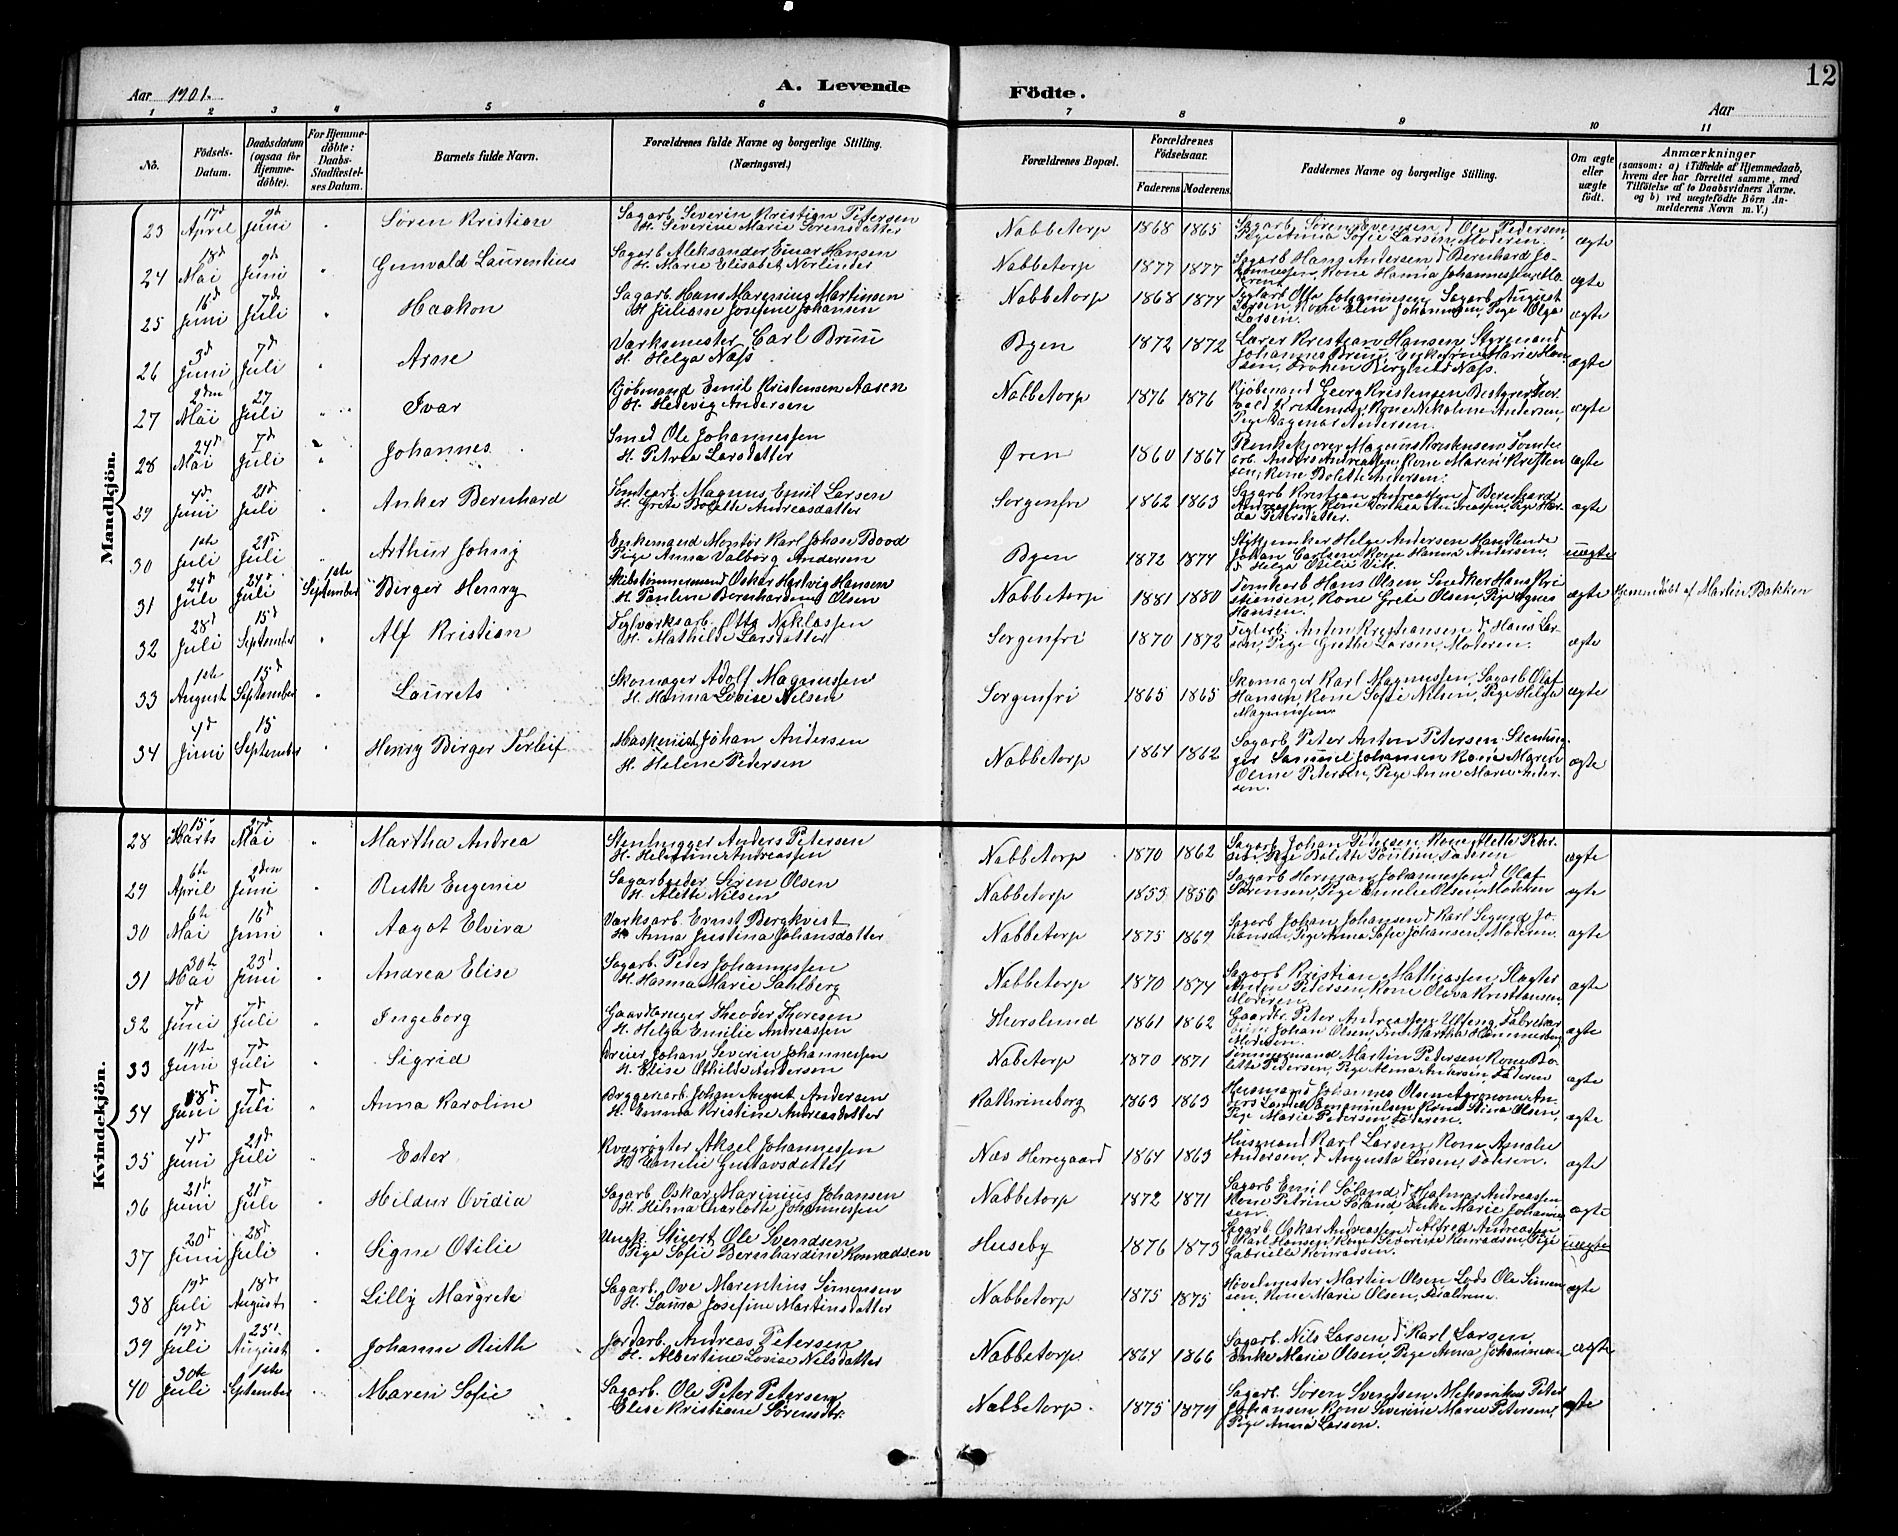 12
Aar 1901. A. Levende Födte. Aar
1 2 3 4 5 6 7 8 9 10 11
No. Födsels-Datum. Daabsdatum (ogsaa for Hjemmedöbte). For Hjemmedöbte: Daabs-Stadfæstelses Datum. Barnets fulde Navn. Forældrenes fulde Navne og borgerlige Stilling. (Næringsvei.) Forældrenes Bopæl. Forældrenes Födselsaar. Faderens Moderens. Faddernes Navne og borgerlige Stilling. Om ægte eller uægte födt. Anmærkninger (saasom: a) i Tilfælde af Hjemmedaab, hvem der har forrettet samme, med Tilföielse af to Daabsvidners Navne, og b) ved uægtefödte Börn Anmelderens Navn m. V.)
Mandkjön.
23 17d April 9d Juni Søren Kristian Sagarb. Severin Kristian Petersen H. Severine Marie Sørensdatter Nabbetorp 1868 1865 Sagarb. Søren Evensen, d Ole Pedersen, Pige Anna Sofie Larsen, Moderen. ægte
24 18d Mai 9d Juni Gunvald Laurentius Sagarb. Aleksander Einar Hansen H. Marie Elisabet Norlinder Nabbetorp 1877 1877 Sagarb Hans Andersen d Bernhard Johannessen, Kone Hanna Johannessen, Moderen. ægte
25 16d Juni 7de Juli Haakon Sagarb. Hans Marenius Martinsen H. Juliane Josefine Johansen Nabbetorp 1868 1874 Otto Johannesen, Sagarb August Larsen, Kone Elin Johannesen, Pige Olga Larsen. ægte
26 3d Juni 7d Juli Arne Værksmester Carl Bruu H. Helga Næss Byen 1872 1872 Lærer Kristian Hansen Styrmand Johannes Bruu, Enkefru Marie Hansen, Frøken Berghild Næss. ægte
27 2den Mai 27 Juli Ivar Kjøbmand Emil Kristensen Aasen H. Hedevig Andersen Nabbetorp 1876 1876 Kjøbmand Georg Kristensen Bestyrer Thorvald Kristensen, Kone Nikoline Andersen, Pige Dagmar Andersen. ægte
28 24d Mai 7d Juli Johannes Smed Ole Johannessen H. Petrea Larsdatter Øren 1860 1867 Magnus Kristensen Tomtearb. Anders Andreassen, Kone Maren Kristensen, Kone Bolette Andersen. ægte
29 4d Juni 21d Juli Anker Bernhard Tomtearb. Magnus Emil Larsen H. Grete Bolette Andreasdatter Sorgenfri 1862 1863 Sagarb Kristian Andreassen d Bernhard Andreassen, Kone Dorthea Andreassen, Pige Petersdatter. ægte
30 1ste Juli 21d Juli Arthur Johny Enkemand Montør Karl Johan Bood Pige Anna Valborg Andersen Byen 1872 1874 Helge Andersen Handlende Johan Carlsen, Kone Hanna Andersen, d Helga Otilie Vik. uægte
31 24d Juli 24d Juli 1ste September Birger Henry Skibstømmermand Oskar Hartvig Hansen H. Pauline Bernhardine Olsen Nabbetorp 1881 1880 Tomtearb Hans Olsen Snedker Hans Kristiansen, Kone Grete Olsen, Pige Agnes Hansen. ægte Hjemmedøbt af Martin Bakken
32 28d Juli 15d September Alf Kristian Teglværksarb. Otto Niklassen H. Mathilde Larsdatter Sorgenfri 1870 1872 Teglarb. Anton Kristiansen d Hans Larsen, Pige Grethe Larsen, Moderen. ægte
33 1ste August 15d September Laurets Skomager Adolf Magnussen H. Hanna Lovise Nilsen Sorgenfri 1865 1865 Skomager Karl Magnussen, Sagarb Olaf Hansen, Kone Sofie Nilsen, Pige Helga Magnussen. ægte
34 4d Juni 15 September Henry Birger Torleif Maskenist Johan Andersen H. Helene Pedersen Nabbetorp 1864 1862 Sagarb Peter Anton Petersen Stenhugger Samuel Johansen Kone Maren Oline Petersen, Pige Anne Marie Andersen. ægte
Kvindekjön.
28 15d Marts 27d Mai Martha Andrea Stenhugger Anders Petersen H. Andreassen Nabbetorp 1870 1862 Sagarb Johan Pedersen, Kone Mette Petersen, Pige Bolette Poulsen, Faderen ægte
29 6th April 2den Juni Ruth Eugenie Sagarbeider Søren Olsen H. Alette Nilsen Nabbetorp 1853 1856 Sagarb Herman Johannesen d Olaf Sørensen, Pige Emelie Olsen, Moderen ægte
30 6te Mai 16d Juni Aagot Elvira Værksarb. Ernst Bergkvist H. Anna Justina Johansdatter Nabbetorp 1875 1869 Sagarb Johan Johansen d Karl Sigurd Johansen, Pige Anna Sofie Johansen, Moderen. ægte
31 30te Mai 23d Juni Andrea Elise Sagarb. Peder Johannessen H. Hanna Marie Sahlberg Nabbetorp 1870 1874 Sagarb Kristian Mathiassen Slagter Anton Petersen, Kone Olava Kristiansen Moderen ægte
32 7d Juni 7d Juli Ingeborg Gaardbruger Theodor Thoresen H. Helga Emilie Andreassen Thorslund 1861 1862 Gaardbr. Peter Andreassen Johan Olsen, Martha Moderen ægte
33 11te Juni 7d Juli Sigrid Dreier Johan Severin Johannessen H. Elise Othilde Andersen Nabetorp 1870 1871 Tømmermand Martin Petersen Kone Bolette Pedersen, Pige Alma Andersen, Faderen ægte
34 18d Juni 7d Juli Anna Karoline Bryggeriarb. Johan August Andersen H. Emma Kristine Andreasdatter Kathrineborg 1863 1863 Husmand Johannes Olsen Agronom Anders Emanuelsen Kone Stina Olsen, Pige Marie Pedersen, Faderen. ægte
35 4d Juni 21d Juli Ester Kvægrøgter Aksel Johannessen H. Emelie Gustavsdatter Næs Herregaard 1864 1863 Husmand Karl Larsen Kone Amalie Andersen, d Augusta Larsen, Faderen. ægte
36 21d Juni 21d Juli Hildur Ovidia Sagarb. Oskar Marinius Johansen H. Hilma Charlotte Johannessen Nabbetorp 1872 1871 Sagarb Emil Søland, d Hjalmar Andreassen Kone Petrine Søland, Enke Marie Johannessen. ægte
37 20d Juni 28d Juli Signe Otilie Ungk. Stigert Ole Svendsen Pige Sofie Bernhardine Konradsen Huseby 1876 1873 Sagarb. Oskar Andreassen d Alfred Andreassen Karl Hansen, Kone Severine Konradsen, Pige Gabrielle Konradsen. uægte
38 19d Juli 18d August Lilly Margrete Sagarb. Ove Marentius Simensen H. Laura Josefine Martinsdatter Nabbetorp 1875 1875 Høvelmester Martin Olsen, Lods Ole Simensen, Kone Marie Olsen, Forældrene. ægte
39 19d Juli 25d August Johanne Ruth Jordarb. Andreas Petersen H. Albertine Lovise Nilsdatter Nabbetorp 1864 1866 Sagarb. Nils Larsen d Karl Larsen, Enke Marie Olsen, Pige Anna Johannesen ægte
40 30te Juli 1ste September Maren Sofie Sagarb. Ole Peter Petersen Elise Kristiane Sørensdtr. Nabbetorp 1875 1879 Sagarb. Søren Svendsen Mekanikus Peter Johansen Kone Severine Marie Petersen, Pige Anna Larsen. ægte